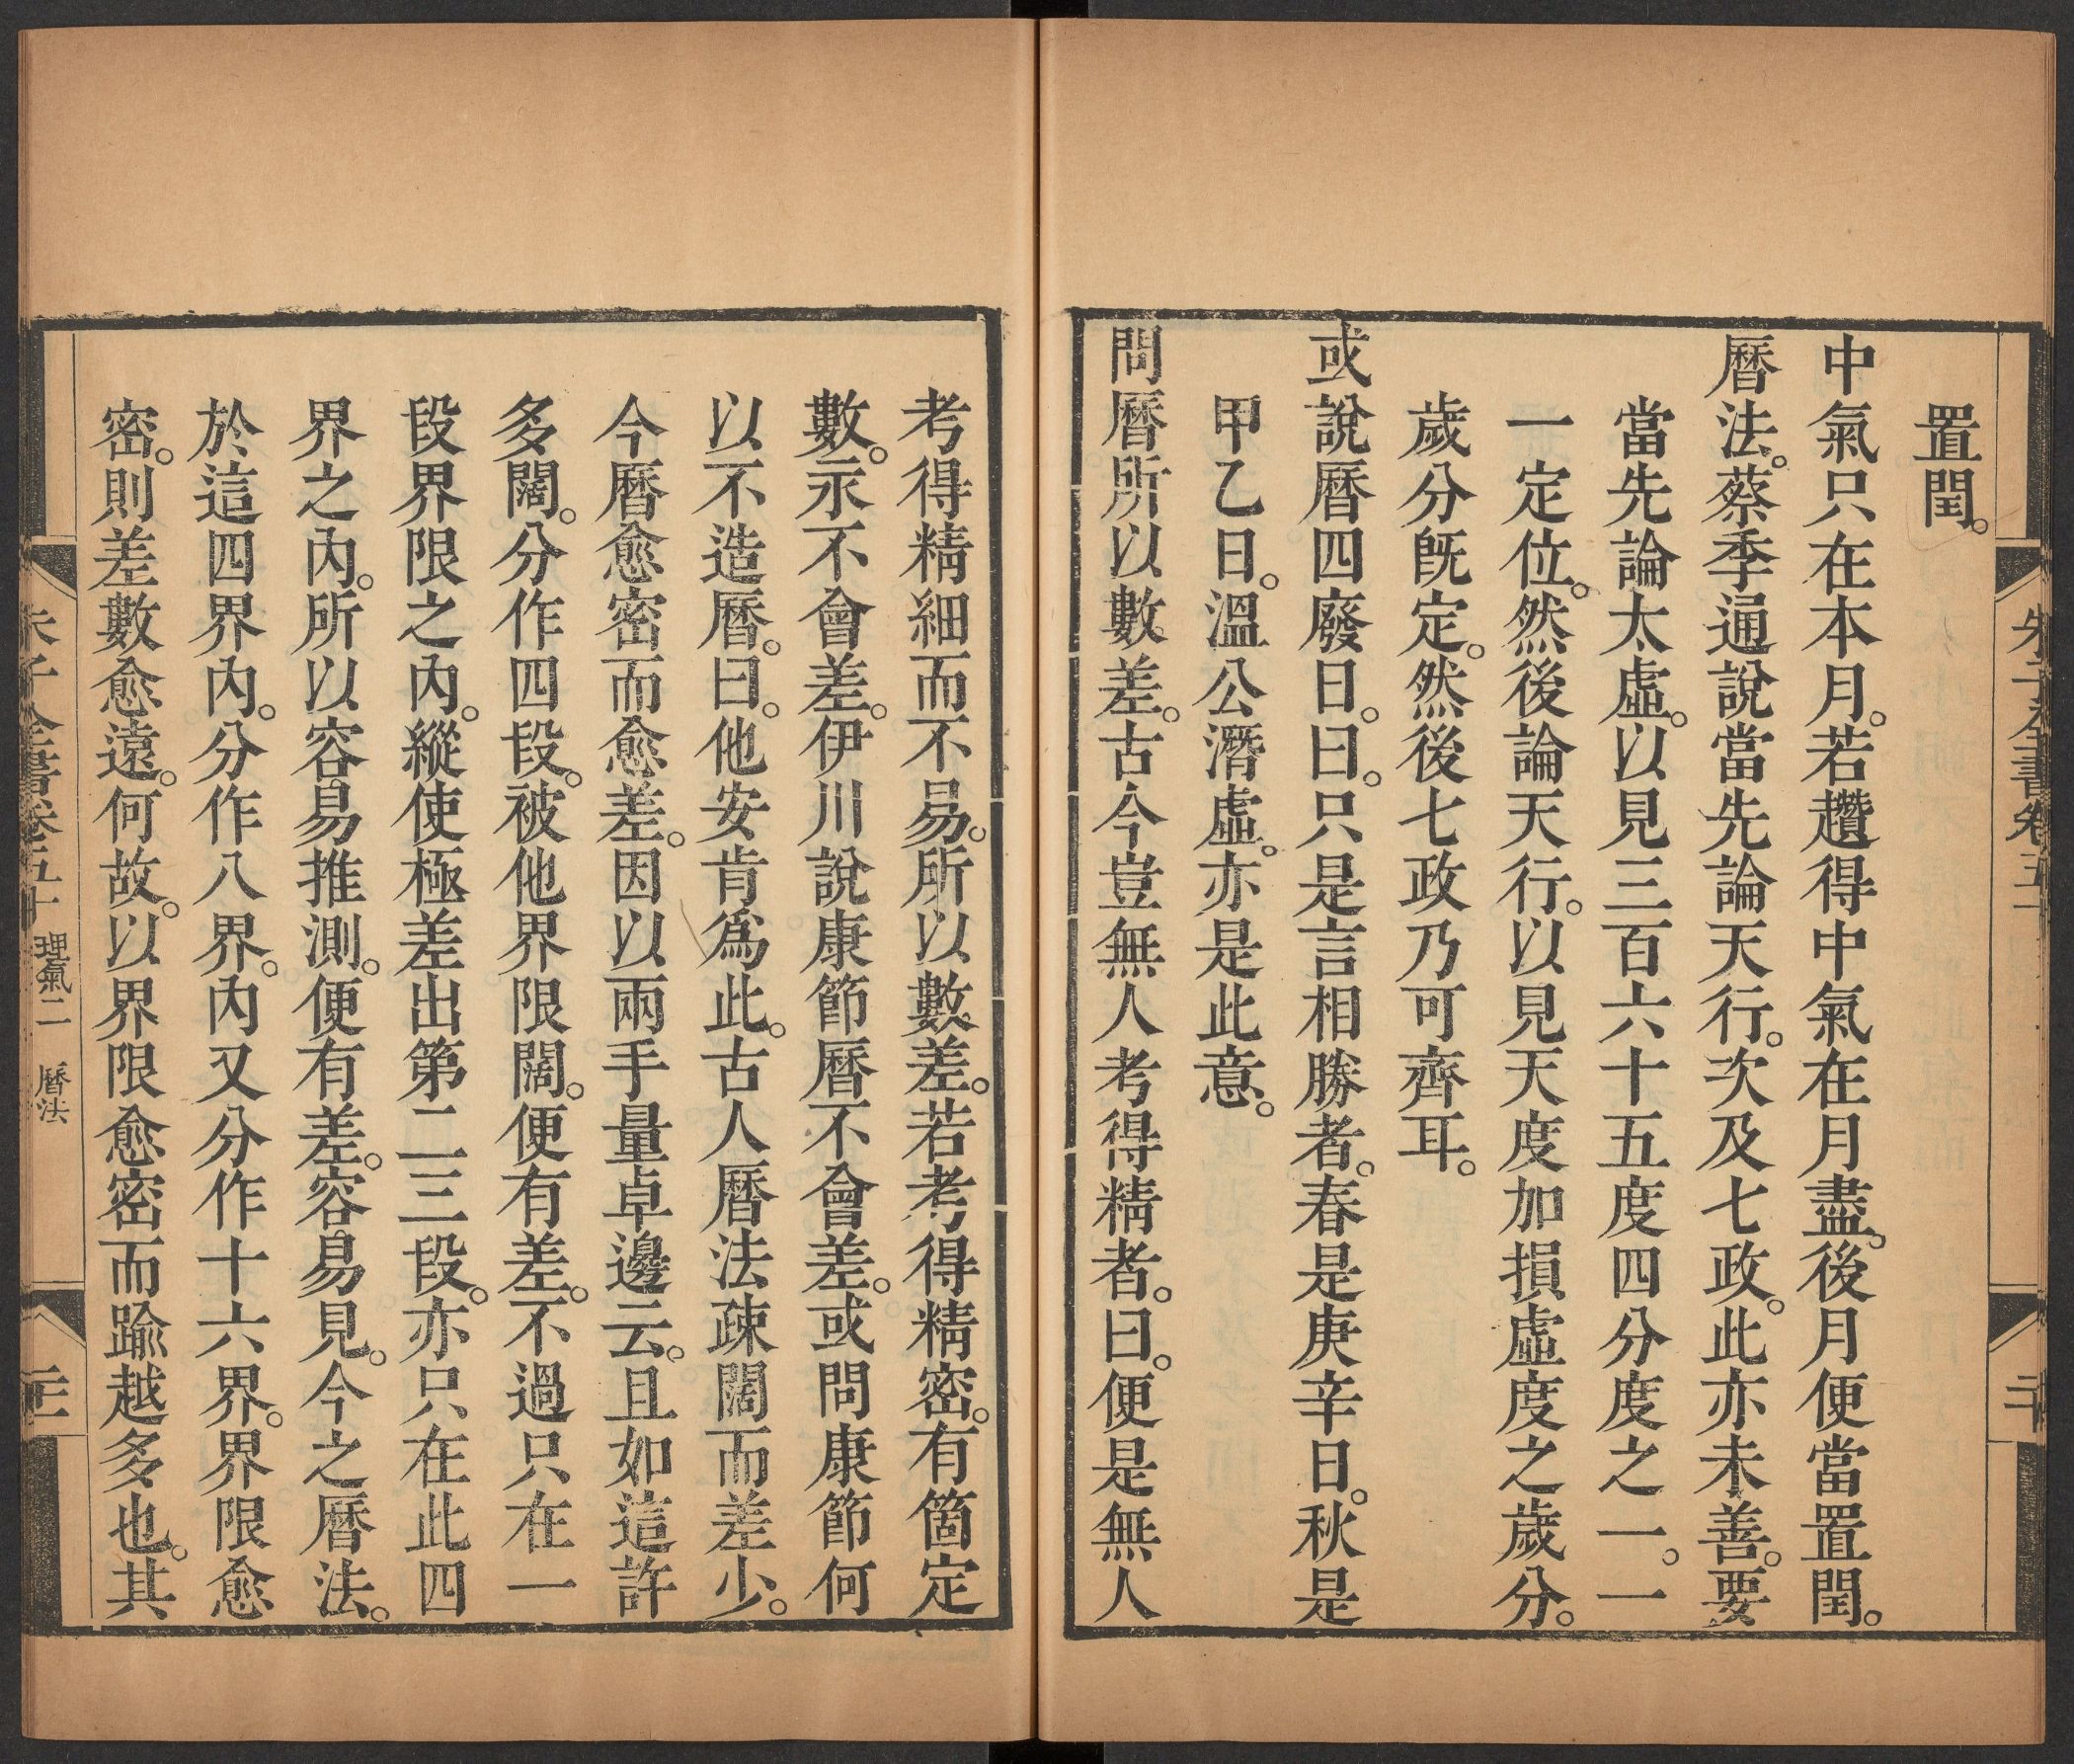 置閏。
中氣只在本月。若趲得中氣在月盡。後月便當置閏。
曆法。蔡季通說當先論天行。次及七政。此亦未善。要
當先論太虛。以見三百六十五度四分度之一。一
一定位。然後論天行。以見天度加損虛度之歲分。
歲分旣定。然後七政乃可齊耳。
或說曆四廢日。曰。只是言相勝者。春是庚辛日。秋是
甲乙日。溫公潛虛。亦是此意。
問曆所以數差。古今豈無人考得精者。曰。便是無人
考得精細而不易。所以數差。若考得精密。有箇定
數。永不會差。伊川說康節曆不會差。或問康節何
以不造曆。曰。他安肯爲此。古人曆法疎闊而差少。
今曆愈密而愈差。因以兩手量卓邊云。且如這許
多闊。分作四段。被他界限闊。便有差。不過只在一
段界限之內。縱使極差出第二三段。亦只在此四
界之內。所以容易推測。便有差。容易見。今之曆法。
於這四界內。分作八界。內又分作十六界。界限愈
密。則差數愈遠。何故。以界限愈密而踰越多也。其
朱子全書卷五十 理氣二 曆法